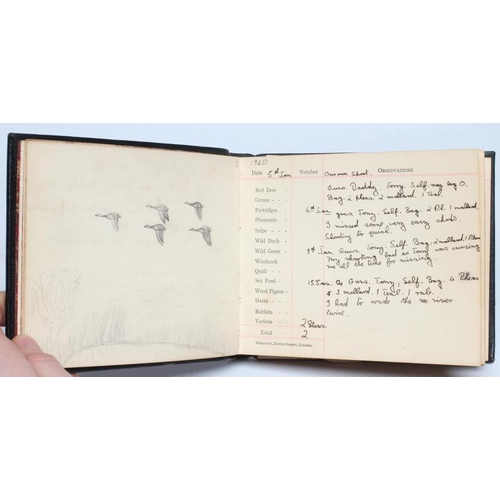 1960
Date 5th Jan Number Our own Shoot. OBSERVATIONS
Red Deer
Guns Daddy, Tony, Self. my bag 0.
Grouse
Bag. 2 pheas. 2 mallard. 1 Teal.
Partridges
6th Jan. guns Tony, Self. Bag 2 Ph. 1 mallard.
Pheasants
I missed some very easy shots.
Snipe
Shooting to
Wild Duck
9th Jan Guns Tony, Self. Bag. 2 mallard. 1 Pheas
Wild Geese
My shooting bad so Tony was cursing
Woodcock
me all the time for missing.
Quail
Sea Fowl
15 Jan. Guns. Tony, Self. Bag. 4 Pheas
Wood Pigeons
3 mallard. 1 Teal. 1 rab.
Hares
I had to wade the river
Rabbits
twice.
Various 2
Total 2
LONDON.